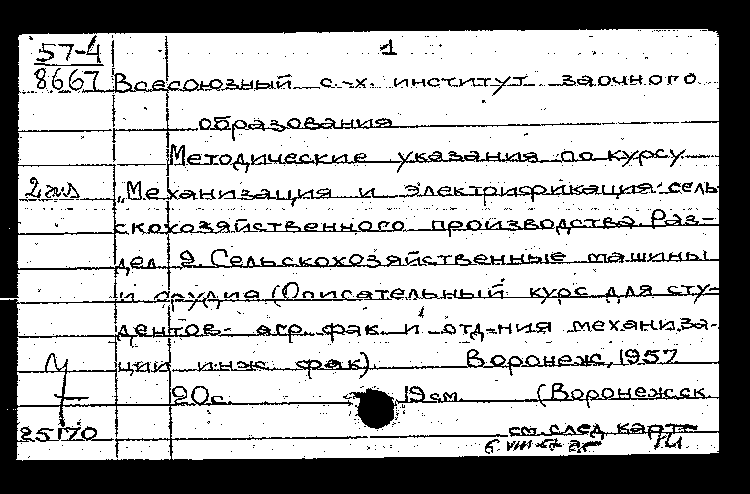 57-4
8667
1
Всесоюзный с.-х. институт заочного
образования
Методические указания по курсу
2 экз
„Механизация и электрификация сель
скохозяйственного производства. Раз-
дел 2. Сельскохозяйственные машины
и орудия (Описательный курс для сту-
дентов- агр. фак. и отд-ния механиза-
ции инж. фак). Воронеж, 1957
20с. 19см. (Воронежск.
25170
см. след карт